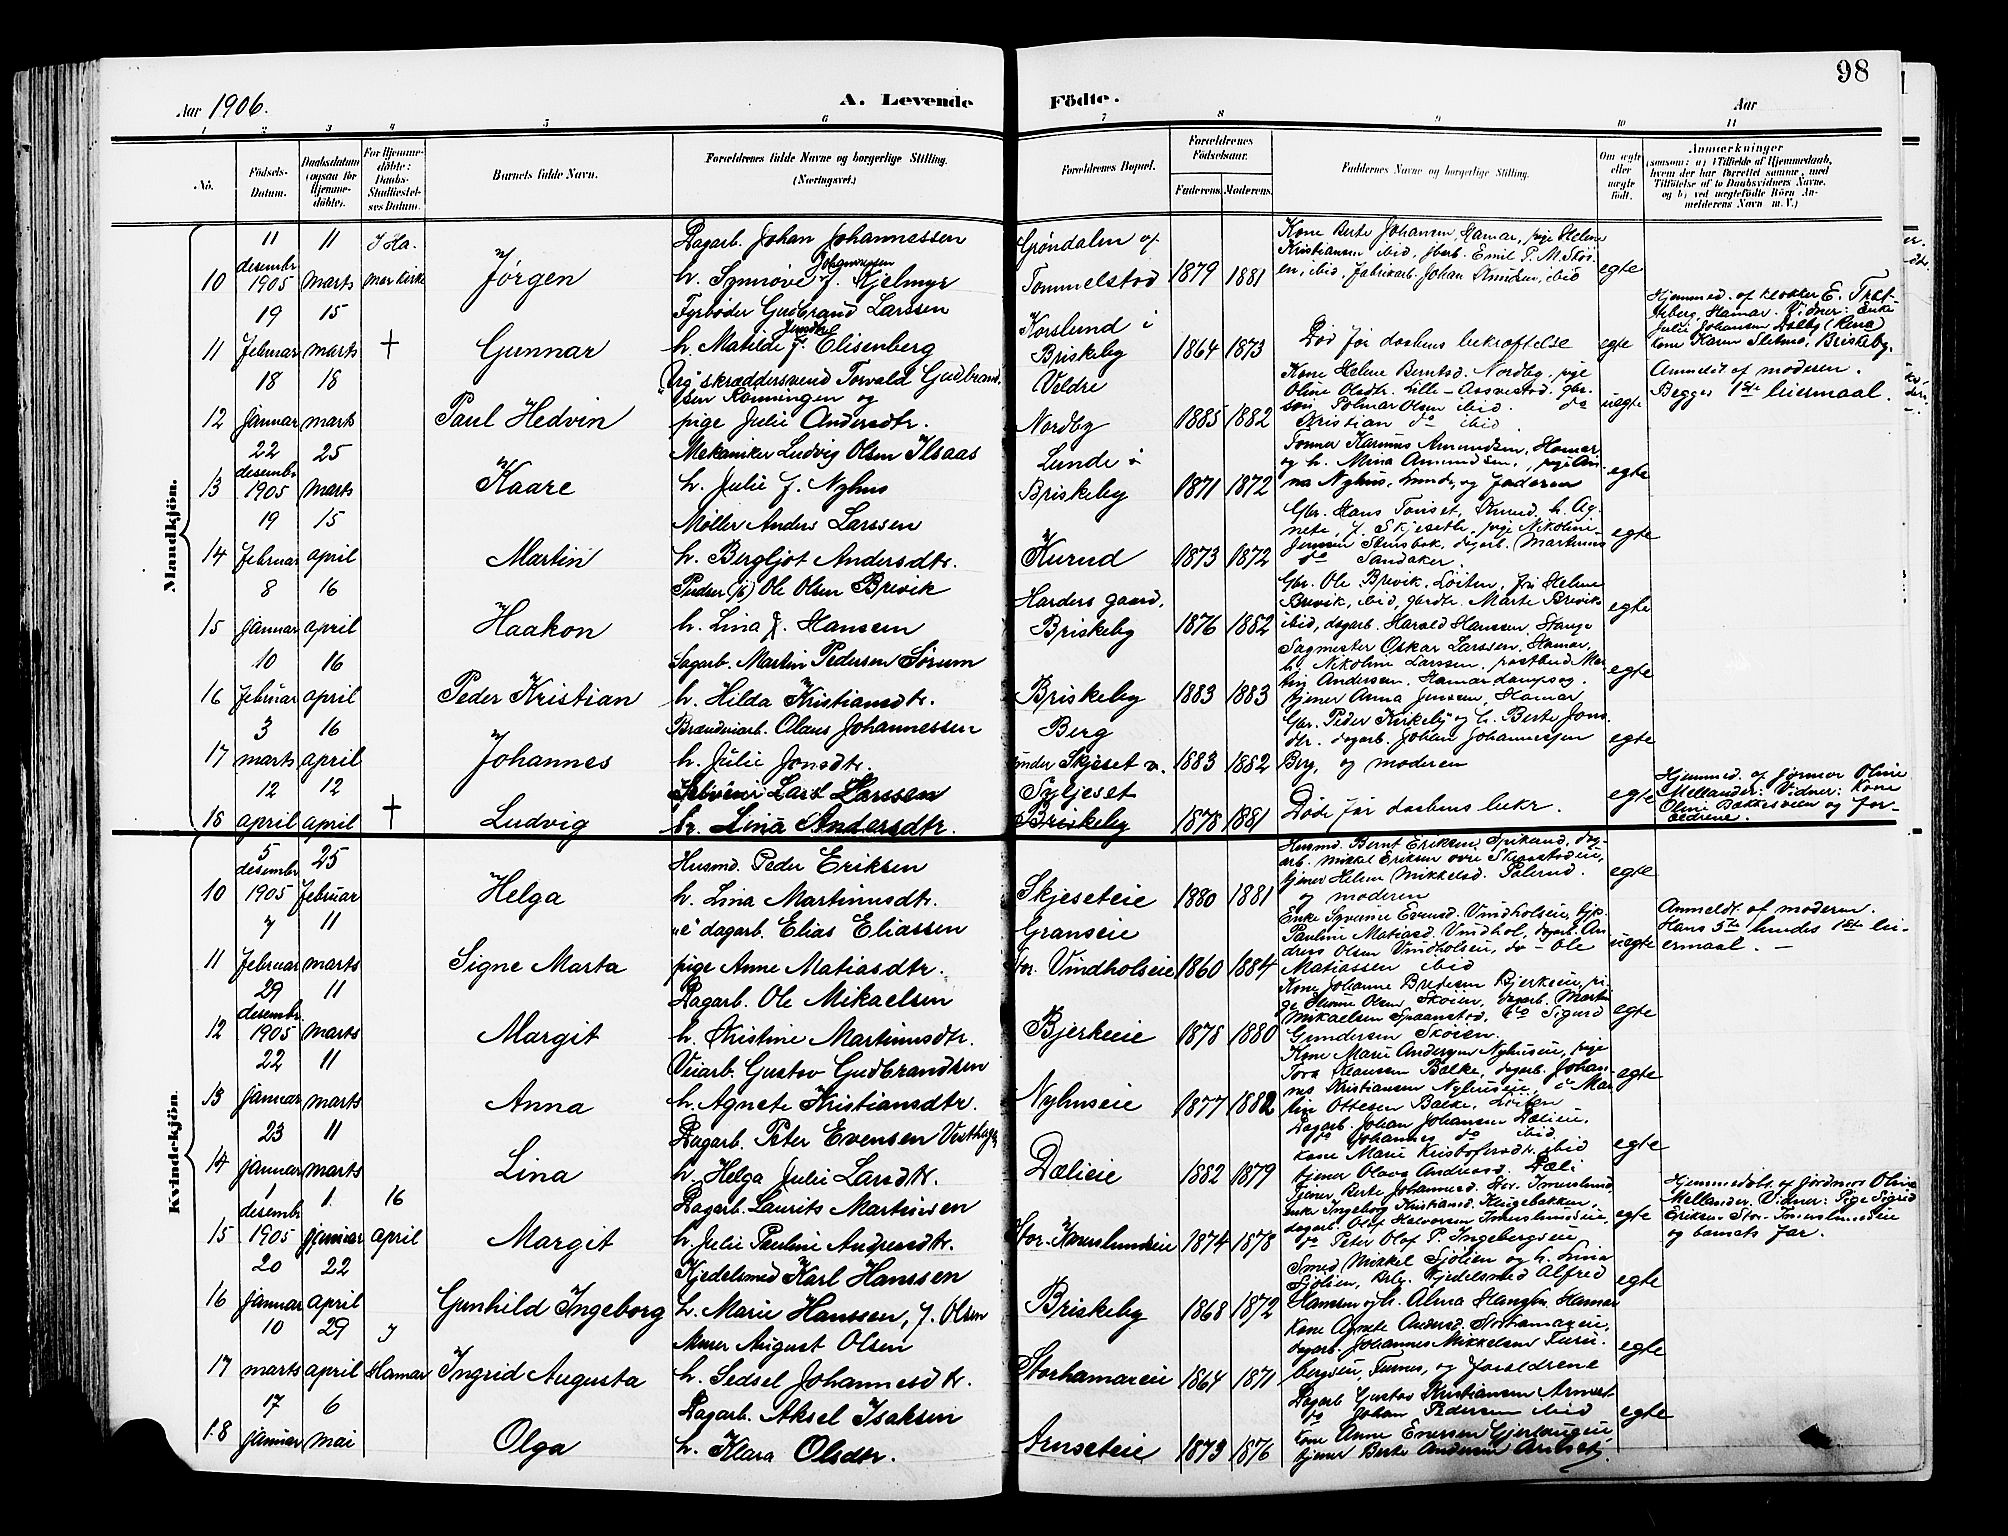 98
Aar 1906.
A. Levende
Födte.
Aar
1 2 3 4 5 6 7 8 9 10 11
No.
Födsels-Datum.
Daabsdatum (ogsaa for Hjemmedöbte).
For Hjemmedöbte: Daabs-Stadfæstelses Datum.
Barnets fulde Navn.
Forældrenes fulde Navne og borgerlige Stilling.
(Næringsvei.)
Forældrenes Bopæl.
Forældrenes Födselsaar.
Faderens. Moderens.
Faddernes Navne og borgerlige Stilling.
Om ægte eller uægte födt.
Anmærkninger
(saasom: a) i Tilfælde af Hjemmedaab, hvem der har forrettet samme, med Tilföielse af to Daabsvidners Navne, og b) ved uægtefödte Börn Anmelderens Navn m. V.)
Mandkjön.
10 11 desembr 1905 11 marts I Hamar kirke Jørgen
Dagarb. Johan Johannessen
h. Synnøve Johannessen f. Kjelmyr
Grøndalen af Tommelstad 1879 1881
Kone Berte Johansen, Hamar, pige Helene Kristiansen ibid, fbarb. Emil P. M. ibid, fabrikarb. Johan Knudsen, ibid
egte
11 19 februar 15 marts † Gunnar
Fyrbøder Gudbrand Larssen
h. Matilde f. Elisenberg
Korslund i Briskeby 1864 1873
Død før daabens bekræftelse
egte
Hjemmed. af klokker E. Trætteberg, Hamar. Vidner: Enke Julie Johansen Dalby (Rena) kone Karen Sletmo, Briskeby.
12 18 januar 18 marts Paul Hedvin
Ug skræddersvend Torvald Gudbrandsen Rønningen og
pige Julie Andersdtr.
Veldre Nordby 1885 1882
Kone Helene Berntsd. Nordby, pige Oline Olsdtr. Lille-Aasvestad, gbrsøn Polmar Olsen ibid. do Kristian do ibid.
uegte
Anmeldt af moderen.
Begges 1ste leiermaal.
13 22 desembr 1905 25 marts Kaare
Mekaniker Ludvig Olsen Ilsaas
h. Julie f. Nyhus
Lunde i Briskeby 1871 1872
Tømmer Rasmus Amundsen, Hamar, og h. Mina Amundsen, pige Anna Nyhus, Lunde, og faderen
egte
14 19 februar 15 april Martin
Møller Anders Larssen
h. Bergljot Andersdtr.
Kurud 1873 1872
Gbr. Hans Tønset, Kurud, h. Agnete f. Skjeseth, pige Nikoline Jensen Stensbok, dagarb. Martinus do Sandaker.
egte
15 8 januar 16 april Haakon
Pudser (jb) Ole Olsen Brevik
h. Lina f. Hansen
Harders gaard, Briskeby 1876 1882
Gbr. Ole Brevik, Løiten, frk Helene Brevik, ibid, gbrdtr. Marte Brevik ibid, dagarb. Harald Hanssen Stange
egte
16 10 februar 16 april Peder Kristian
Sagarb. Martin Pedersen Sørum
h. Hilda Kristiansdtr.
Briskeby 1883 1883
Sagmester Oskar Larssen, Hamar, h. Nikoline Larssen, postbud Martin Andersen, Hamar dampsag, tjener Anna Jenssen, Hamar
egte
17 3 marts 16 april Johannes
Brænderiarb. Olaus Johannessen
h. Julie Jonsdtr.
Berg under Skjeset v. 1883 1882
Gbr. Peder Kirkeby og h. Berte Jonsdtr. dagarb. Johan Johannessen Berg, og moderen
egte
18 12 april 12 april † Ludvig
Lars Larssen
h. Lina Andersdtr.
Syljeset Briskeby 1878 1881
Døde før daabens bekr.
egte
Hjemmed. af jormor Oline Mellander: Vidner: kone Oline Bakkesveen og forældrene.
Kvindekjön.
10 5 desembr 1905 25 februar Helga
Husmd. Peder Eriksen
h. Lina Martinusdtr.
Skjeseteie 1880 1881
Husmd. Bernt Eriksen Spikerud, dagarb. Mikkel Eriksen øvre Skjaastadeie, tjener Helene Mikkelsd. Palerud. og moderen
egte
11 7 februar 11 marts Signe Marta
"e" dagarb. Elias Eliassen
pige Anne Matiasdtr.
Granseie Stor. Vindholseie 1860 1884
Enke Syverine Evensd. Vindholseie, pige Pauline Matiasd. Vindhol, dagarb. Andreas Olsen Vindholseie, do - Ole Matiassen ibid
uegte
Anmeldt. af moderen.
Hans 5te hendes 1ste leiermaal. —
12 29 desembr 1905 11 marts Margit
Dagarb. Ole Mikaelsen
h. Kristine Martinusdtr.
Bjerkeeie 1878 1880
Kone Johanne Bredesen Bjerkeeie, pige Hanne Olsen Skøien, dagarb. Martin Mikaelsen Spaanstad, do Sigurd Gundersen Skøien.
egte
13 22 januar 11 marts Anna
Veiarb. Gustav Gudbrandsen
h. Agnete Kristiansdtr.
Nyhuseie 1877 1882
Kone Marie Andersen Nyhuseie, pige Tora Klaussen Balke, dagarb. Johannes Kristiansen Nyhuseie, do Martin Ottesen Balke, Løiten
egte
14 23 januar 11 marts Lina
Dagarb. Peter Evensen Vesthage
h. Helga Julie Larsdtr.
Dælieie 1882 1879
Dagarb. Johan Johansen Dælieie, do Johannes do ibid, kone Marie Kristoffersdtr. ibid tjener Olava Andreasd. Dæli
egte
15 1 desembr 1905 1. januar 16 april Margit
Dagarb. Laurits Martinsen
h. Julie Pauline Andreasdtr.
Stor. Imerslundeie 1874 1878
Tjener Berte Johannesd. Stor. Imerslund, enke Ingeborg Kristiansd. Klugebakken, dagarb. Olaf Halvorsen Imerslundeie, do Peter Olaf P. Ingebergseie
egte
Hjemmedøbt. af jordmor Oline Mellander. Vidner: Pige Sigrid Eriksen Stor-Imerslundeie og barnets far.
16 20 januar 22 april Gunhild Ingeborg
Kjedelsmed Karl Hanssen
h. Marie Hanssen, f. Olsen
Briskeby 1868 1872
Smed Mikkel Sjølien og h. Lina Sjølien, Brby. Kjedelsmed Alfred Hansen og h. Alma Hansen Hamar
egte
17 10 marts 29 april I Hamar Ingrid Augusta
Murer August Olsen
h. Sedsel Johannesdtr.
Storhamareie 1864 1871
Kone Agnete Andersd. Storhamareie, dagarb. Johannes Mikkelsen Furubergseie, Furnes, og forældrene
egte
18 17 januar 6 mai Olga
Dagarb. Aksel Isaksen
h. Klara Olsdtr.
Arnseteie 1873 1876
Dagarb Gustav Kristiansen Arnset do Johan Pedersen ibid kone Anne Enersen Gjerlaugeie tjener Berte Andersen Arnset
egte